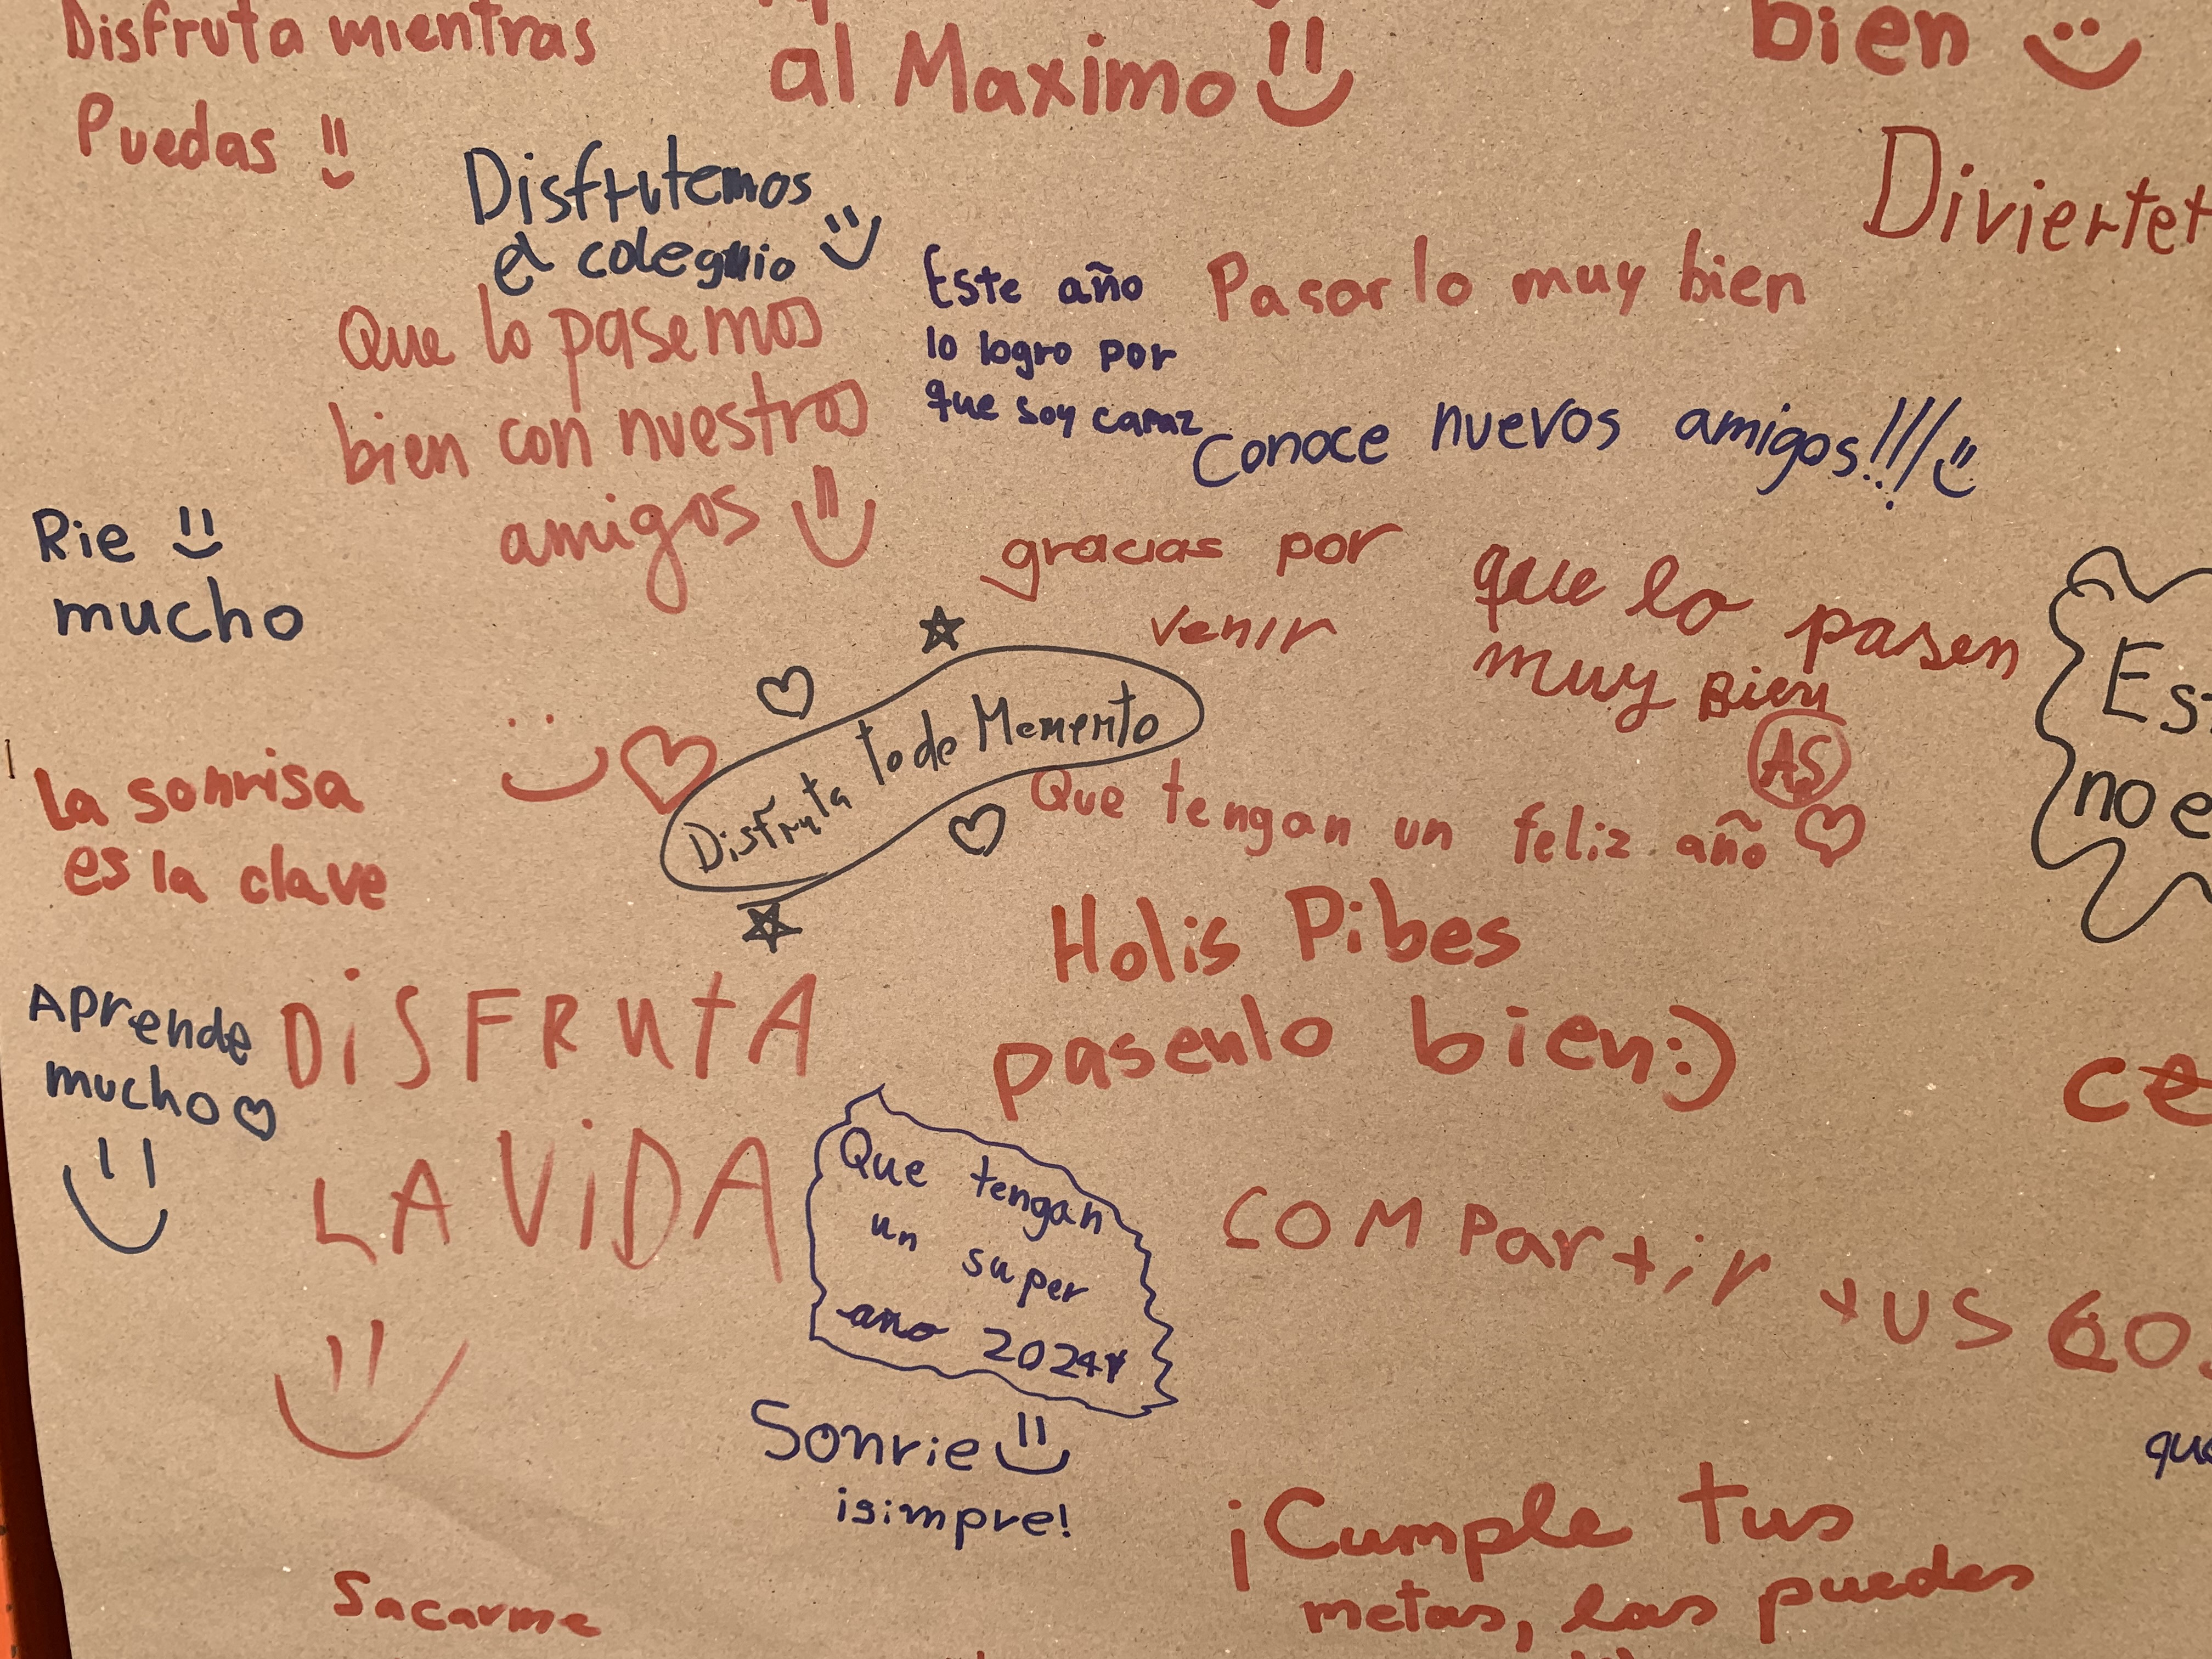 Disfruta mientras
Puedas
al Maximo
bien
Disfrutemos
el colegio
Diviertet
Que lo pasemos
bien con nuestros
amigos
Este año
lo logro por
que soy capaz
Pasarlo muy bien
Conoce nuevos amigos!!!
Rie
mucho
gracias por
venir
que lo pasen
muy Bien
AS
Es
no e
Disfruta todo Momento
La sonrisa
es la clave
Que tengan un feliz año
Holis Pibes
pasenlo bien:)
Aprende
mucho
DiSFRutA
LA ViDA
Que tengan
un super
año 2024
comPartir tus co
Sonrie
¡simpre!
que
¡Cumple tus
metas, las puedes
Sacarme